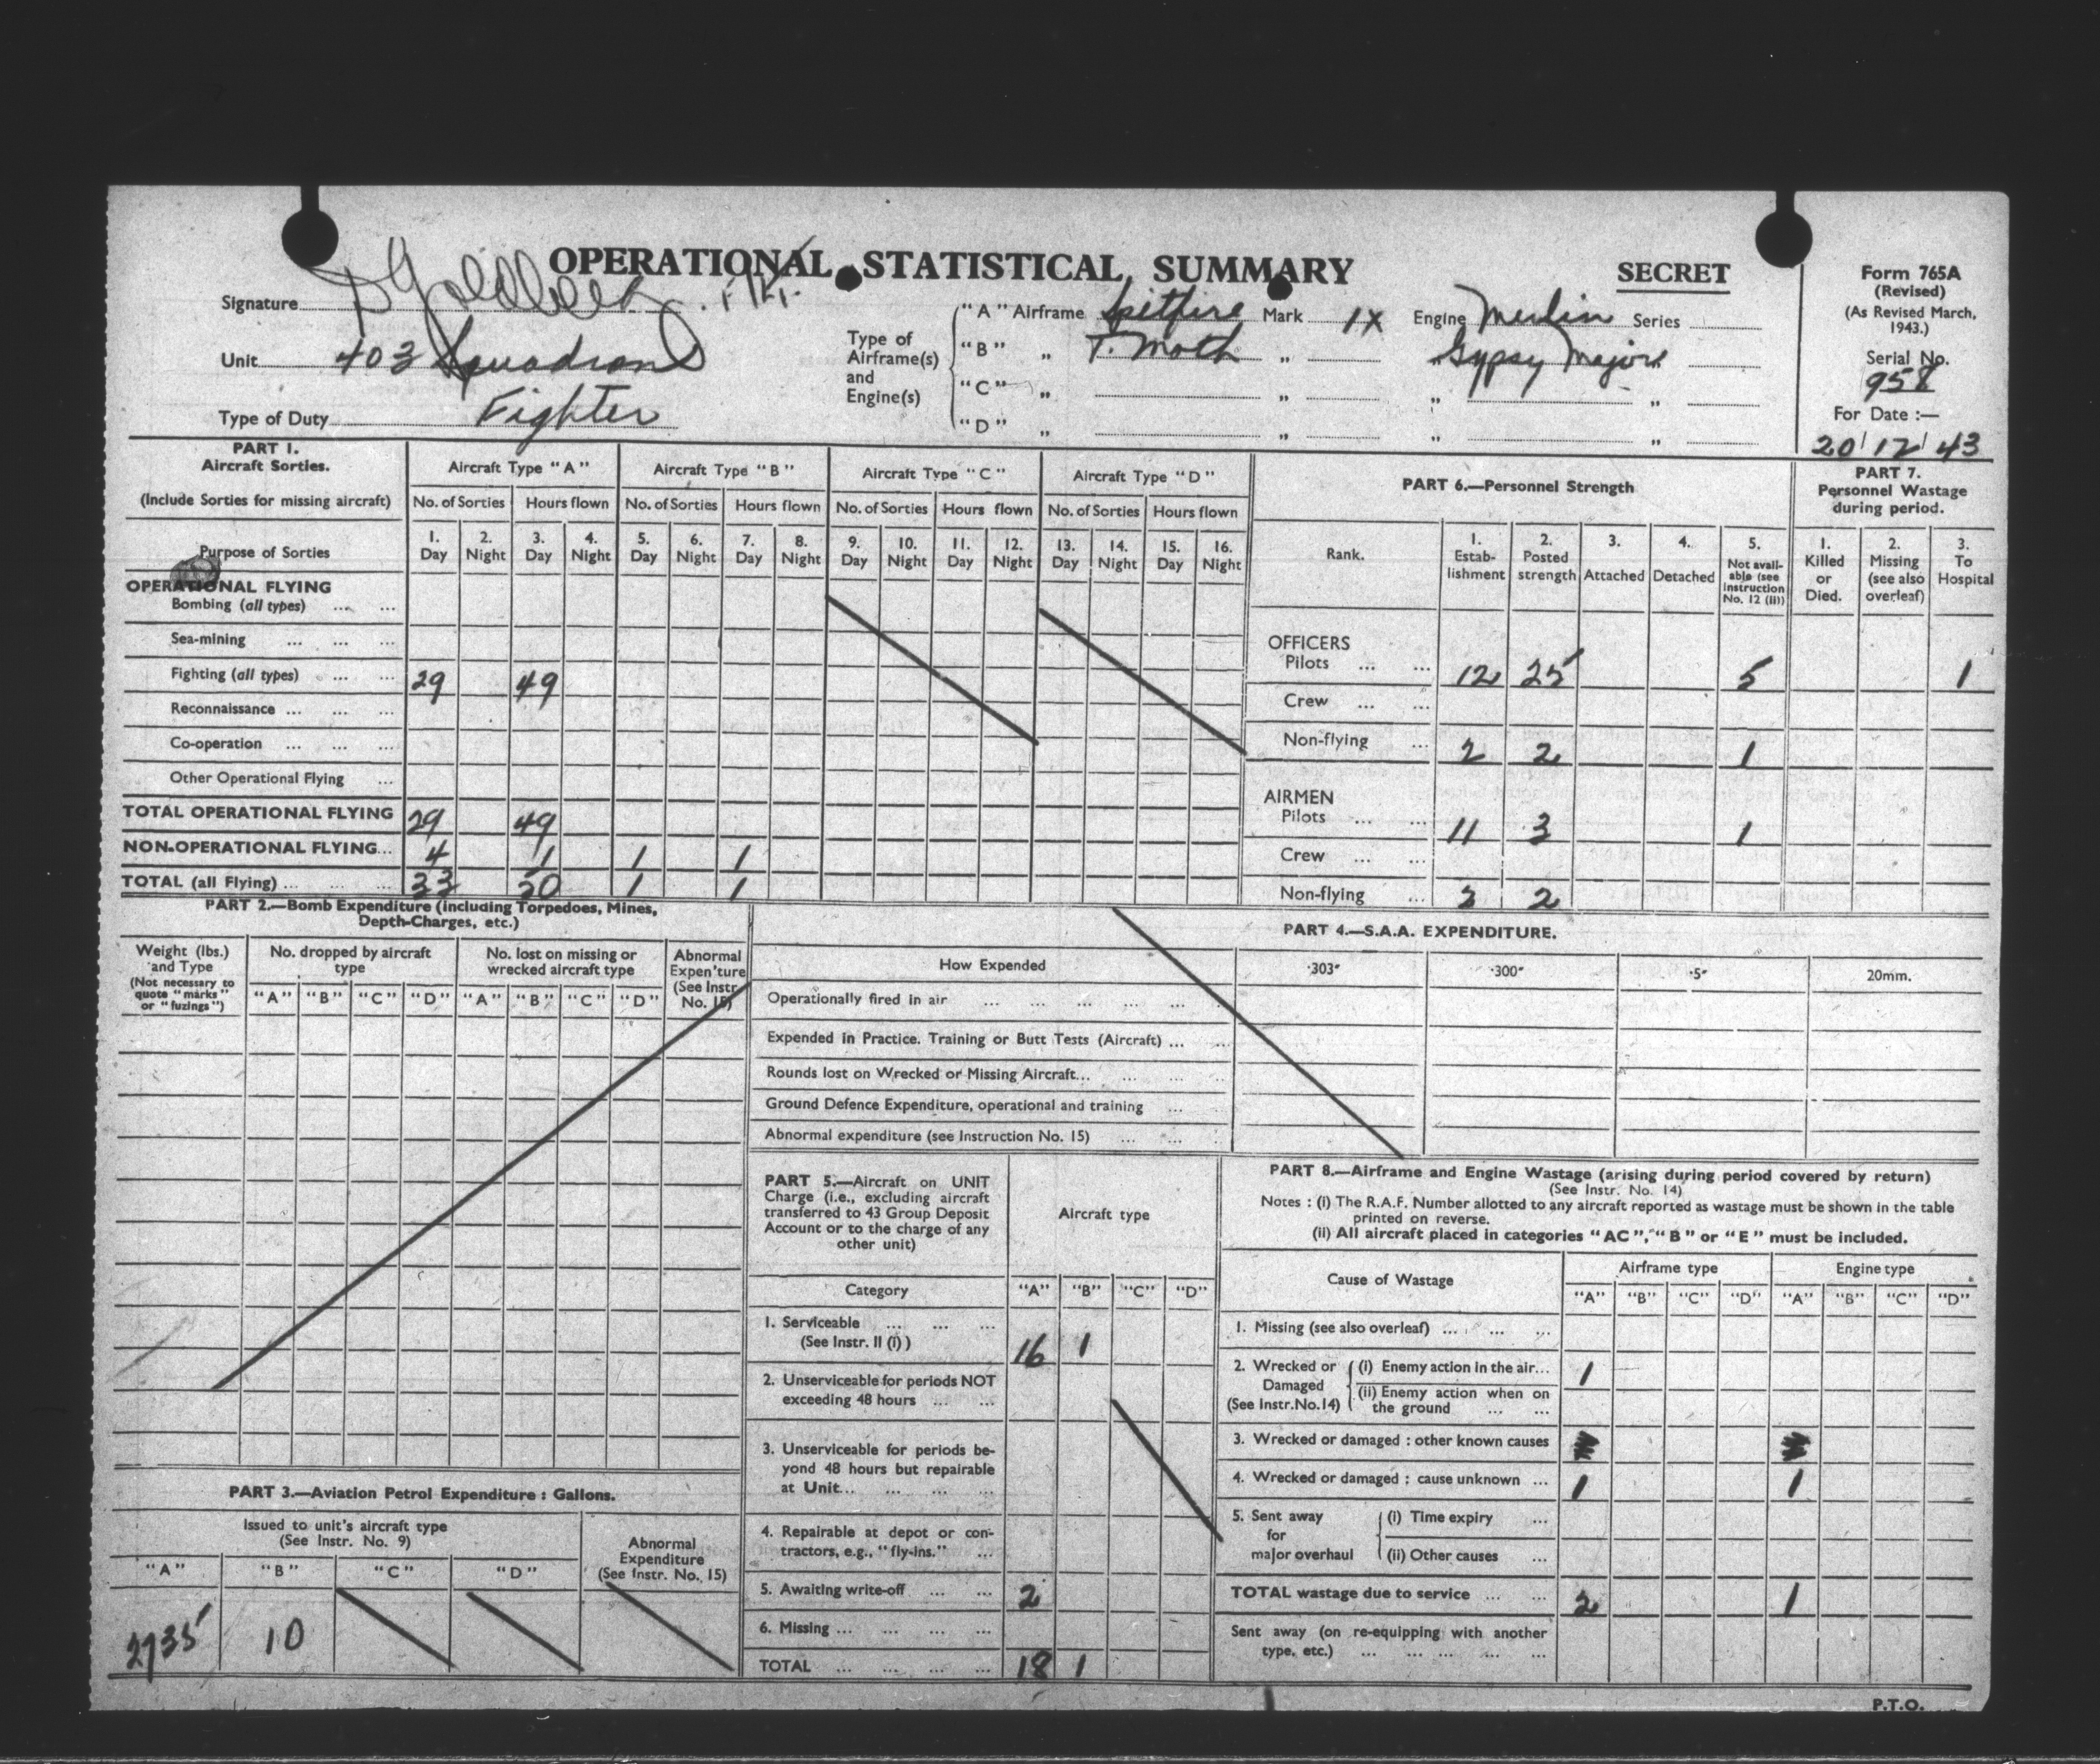 OPERATIONAL STATISTICAL SUMMARY
SECRET
Form 765A
(Revised)
(As Revised March, 1943.)
Serial No.
958
For Date :—
20/12/43
Signature
Unit 403 Squadron
Type of Duty Fighter
Type of Airframe(s) and Engine(s)
"A" Airframe Spitfire Mark IX Engine Merlin Series
"B" " T. Moth " Gypsy Major
"C" " " " "
"D" " " " "
PART 1.
Aircraft Sorties.
(Include Sorties for missing aircraft)
Purpose of Sorties
Aircraft Type "A" Aircraft Type "B" Aircraft Type "C" Aircraft Type "D"
No. of Sorties Hours flown No. of Sorties Hours flown No. of Sorties Hours flown No. of Sorties Hours flown
1. Day 2. Night 3. Day 4. Night 5. Day 6. Night 7. Day 8. Night 9. Day 10. Night 11. Day 12. Night 13. Day 14. Night 15. Day 16. Night
OPERATIONAL FLYING
Bombing (all types) ... ...
Sea-mining ... ... ...
Fighting (all types) ... ... 29 49
Reconnaissance ... ... ...
Co-operation ... ... ...
Other Operational Flying ...
TOTAL OPERATIONAL FLYING 29 49
NON-OPERATIONAL FLYING... 4 1 1 1
TOTAL (all Flying) ... ... ... 33 50 1 1
PART 6.—Personnel Strength
Rank.
1. Estab-lishment
2. Posted strength
3. Attached
4. Detached
5. Not avail-able (see instruction No. 12 (ii))
OFFICERS
Pilots ... ... 12 25 5 1
Crew ... ...
Non-flying ... 2 2 1
AIRMEN
Pilots ... ... 11 3 1
Crew ... ...
Non-flying ... 2 2
PART 7.
Personnel Wastage during period.
1. Killed or Died.
2. Missing (see also overleaf)
3. To Hospital
PART 2.—Bomb Expenditure (including Torpedoes, Mines,
Depth-Charges, etc.)
Weight (lbs.) and Type
(Not necessary to quote "marks" or "fuzings")
No. dropped by aircraft type
No. lost on missing or wrecked aircraft type
Abnormal Expen'ture (See Instr. No. 15)
"A" "B" "C" "D" "A" "B" "C" "D"
PART 4.—S.A.A. EXPENDITURE.
How Expended ·303" ·300" ·5" 20mm.
Operationally fired in air ... ... ... ... ...
Expended in Practice. Training or Butt Tests (Aircraft) ... ...
Rounds lost on Wrecked or Missing Aircraft... ... ... ...
Ground Defence Expenditure, operational and training ...
Abnormal expenditure (see Instruction No. 15) ... ... ...
PART 3.—Aviation Petrol Expenditure : Gallons.
Issued to unit's aircraft type
(See Instr. No. 9)
Abnormal Expenditure
(See Instr. No. 15)
"A" "B" "C" "D"
2735 10
PART 5.—Aircraft on UNIT
Charge (i.e., excluding aircraft
transferred to 43 Group Deposit
Account or to the charge of any
other unit)
Aircraft type
Category "A" "B" "C" "D"
1. Serviceable ... ... ...
(See Instr. II (i) ) 16 1
2. Unserviceable for periods NOT
exceeding 48 hours ... ...
3. Unserviceable for periods be-
yond 48 hours but repairable
at Unit... ... ... ...
4. Repairable at depot or con-
tractors, e.g., "fly-ins." ...
5. Awaiting write-off ... ... 2
6. Missing ... ... ... ...
TOTAL ... ... ... ... 18 1
PART 8.—Airframe and Engine Wastage (arising during period covered by return)
(See Instr. No. 14)
Notes : (i) The R.A.F. Number allotted to any aircraft reported as wastage must be shown in the table
printed on reverse.
(ii) All aircraft placed in categories "AC", "B" or "E" must be included.
Cause of Wastage Airframe type Engine type
"A" "B" "C" "D" "A" "B" "C" "D"
1. Missing (see also overleaf) ... ... ...
2. Wrecked or Damaged (See Instr.No.14)
(i) Enemy action in the air... 1
(ii) Enemy action when on the ground ... ...
3. Wrecked or damaged : other known causes
4. Wrecked or damaged : cause unknown ... 1 1
5. Sent away for major overhaul
(i) Time expiry ...
(ii) Other causes ...
TOTAL wastage due to service ... ... 2 1
Sent away (on re-equipping with another
type, etc.) ... ... ... ... ...
P.T.O.